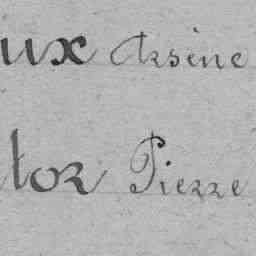 ux Arsène
tor Pierre